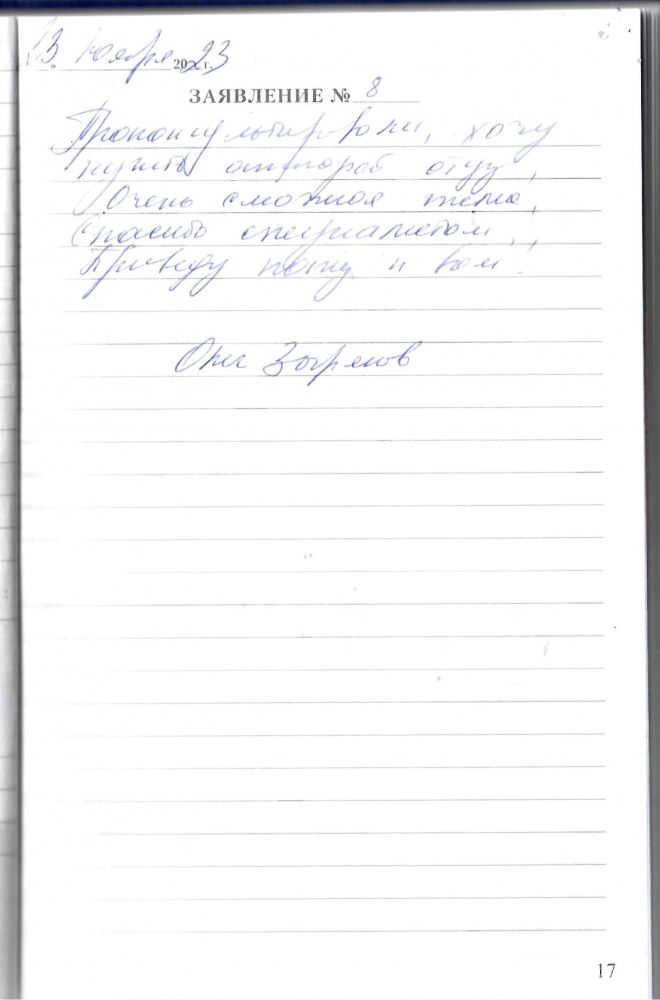 23 ноября 2023 г.
ЗАЯВЛЕНИЕ № 8
Проконсультировали, хочу
купить аппарат отцу,
Очень сложная тема,
Спасибо специалистам,
Приведу папу к вам.
Олег
17